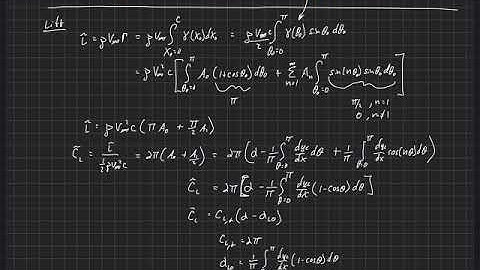 Lift
L̃ = ρV∞Γ = ρV∞ ∫_{x₀=0}^{c} γ(x₀)dx₀ = ρV∞c/2 ∫_{θ₀=0}^{π} γ(θ₀) sinθ₀ dθ₀
= ρV∞²c [∫_{θ₀=0}^{π} A₀(1+cosθ₀)dθ₀ + Σ_{n=1}^{∞} Aₙ ∫_{θ₀=0}^{π} sin(nθ₀) sinθ₀ dθ₀]
π
π/2, n=1
0, n≠1
L̃ = ρV∞²c (πA₀ + π/2 A₁)
C̃_L = L̃ / ½ρV∞²c = 2π(A₀ + A₁/2) = 2π(α − 1/π ∫_{θ=0}^{π} dy_c/dx dθ + 1/π ∫_{θ=0}^{π} dy_c/dx cos(nθ)dθ)
C̃_L = 2π[α − 1/π ∫_{θ=0}^{π} dy_c/dx (1−cosθ)dθ]
C̃_L = C_{L,α}(α − α_{L0})
C_{L,α} = 2π
α_{L0} = 1/π ∫_{θ=0}^{π} dy_c/dx (1−cosθ)dθ